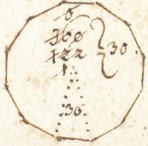 6
360
122 } 30.
1
30